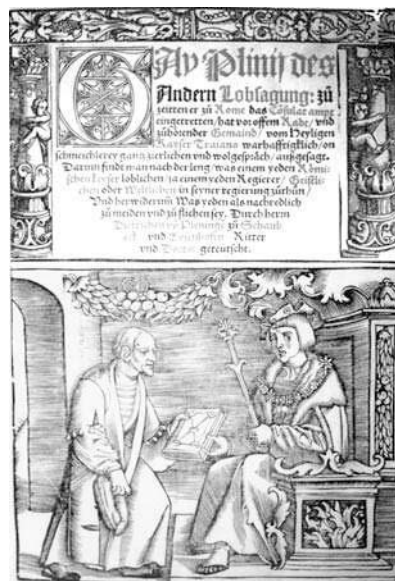 GAy Plinij des
Andern Lobsagung: zů
zeitten er zů Rome das Cõsulat ampt
eingetretten / hat vor offem Radt / vnd
zůhörender Gemaind / vom Heyligen
Kayser Traiano warhafftigklich / on
schmeichlerey gantz zierlichen vnd wolgespräch / außgesagt.
Darinn findt man nach der leng / was einem yeden Römi-
schen keyser loblichen ja einem yeden Regierer / Geistli-
chen oder Weltlichen in seyner regierung zůthůn /
Vnd herwiderumb Was yeden als nachredlich
zů meiden vnd zů fliehen sey. Durch herrn
Dietrichen võ Pleningẽ zů Schaub
eck vnd Ritter
vnd Doctor geteutscht.